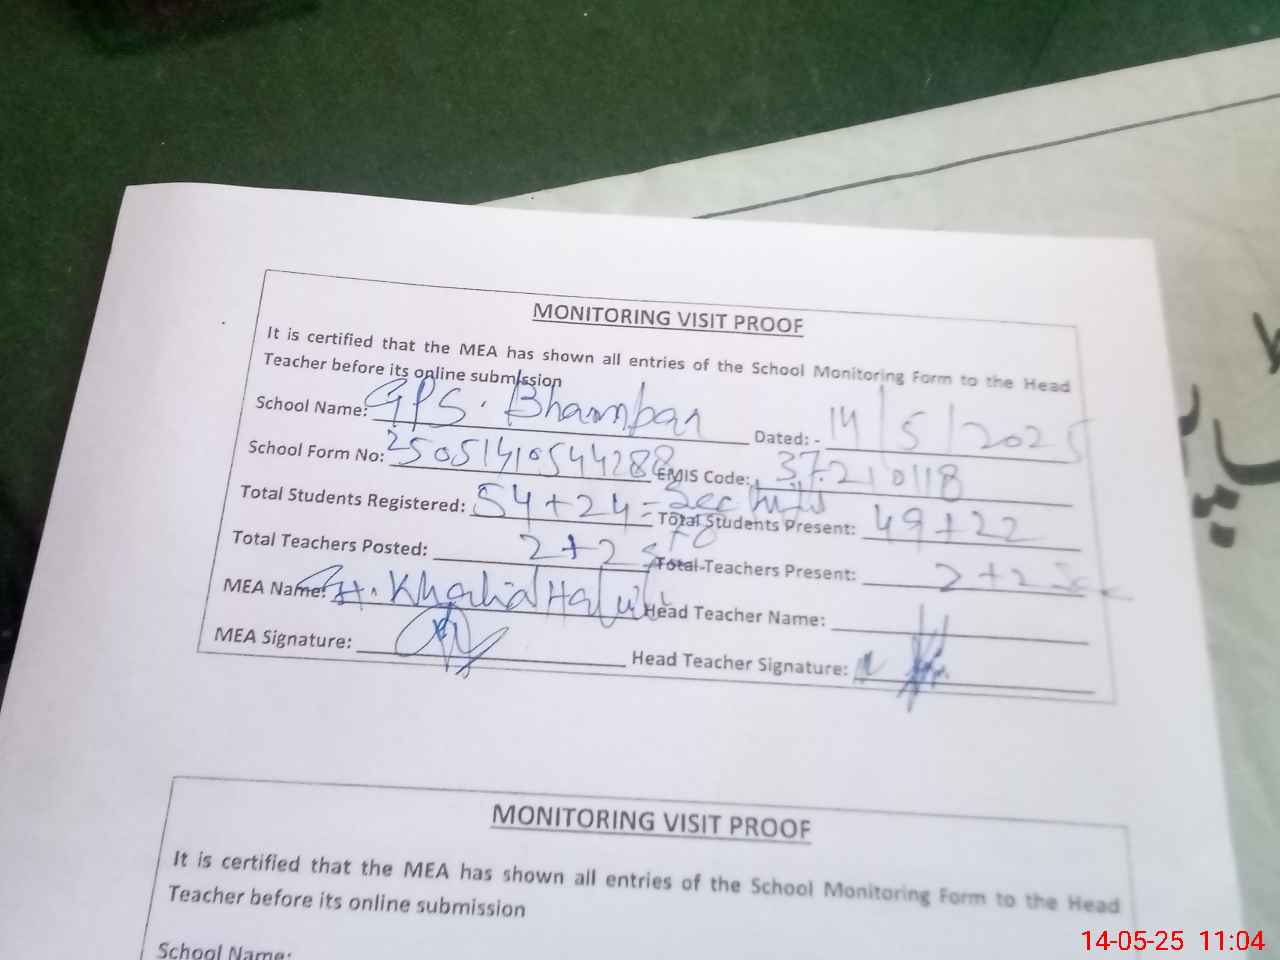 MONITORING VISIT PROOF
It is certified that the MEA has shown all entries of the School Monitoring Form to the Head
Teacher before its online submission
School Name: GPS. Bhambar Dated: - 14/5/2025
School Form No: 2505141054428 EMIS Code: 37210118
Total Students Registered: 54+24= 78 Total Students Present: 49+22
Total Teachers Posted: 2+2 Total Teachers Present: 2+2
MEA Name: Khalid Head Teacher Name:
MEA Signature: Head Teacher Signature:
MONITORING VISIT PROOF
It is certified that the MEA has shown all entries of the School Monitoring Form to the Head
Teacher before its online submission
School Name:
14-05-25 11:04